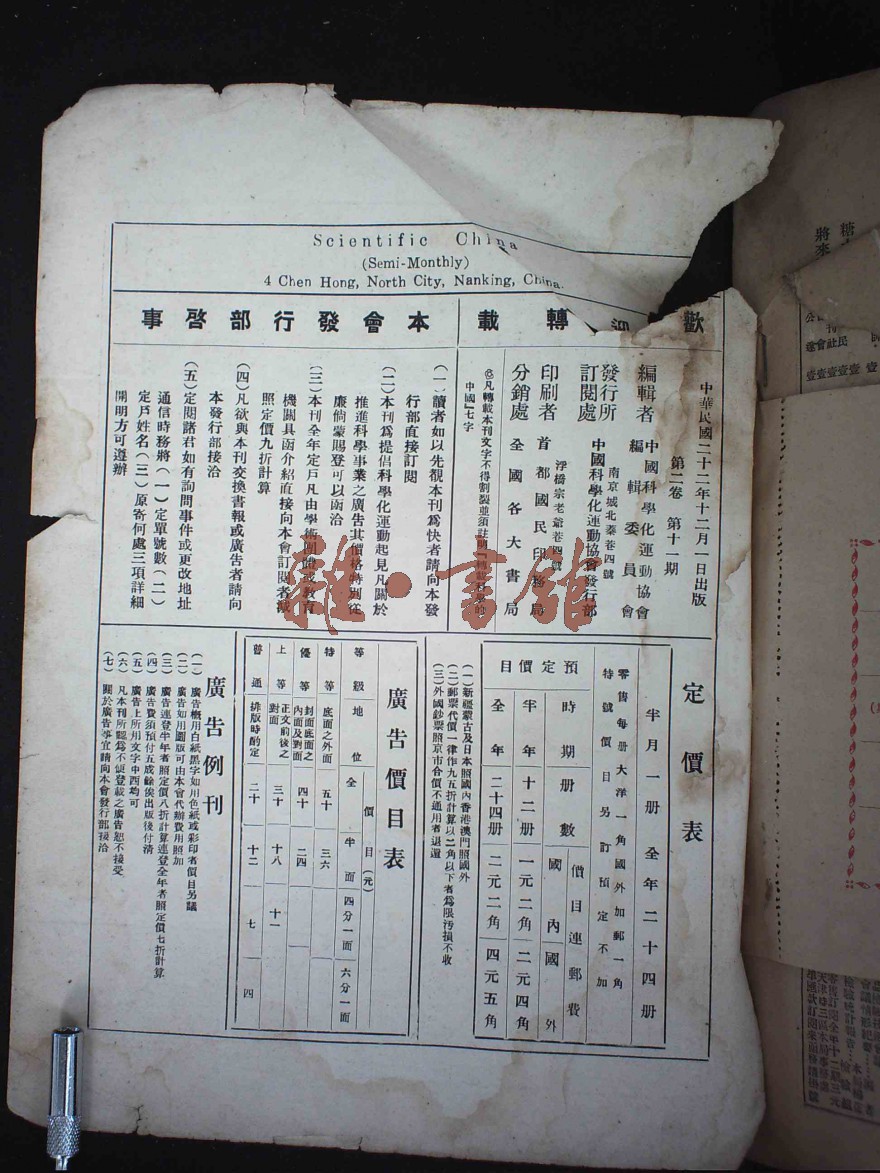 Scientific China
(Semi-Monthly)
4 Chen Hong, North City, Nanking, China.
歡迎轉載
中華民國二十二年十二月一日出版
第二卷 第十一期
編輯者 中國科學化運動協會
編輯委員會
發行所
訂閱處
南京城北蓁巷四號
中國科學化運動協會發行部
浮橋宗老爺巷四號
印刷者 首都國民印務局
分銷處 全國各大書局
㊟凡轉載本刊文字不得割裂並須註明『轉載科學的
中國』七字
本會發行部啓事
(一)讀者如以先覩本刊爲快者請向本發
行部直接訂閱
(二)本刊爲提倡科學化運動起見凡關於
推進科學事業之廣告其價格特別從
廉倘蒙賜登可以函洽
(三)本刊全年定戶凡由學術團體或教育
機關具函介紹直接向本會訂閱者減
照定價九折計算
(四)凡欲與本刊交換書報或廣告者請向
本發行部接洽
(五)定閱諸君如有詢問事件或更改地址
通信時務將(一)定單號數(二)
定戶姓名(三)原寄何處三項詳細
開明方可遵辦
定價表
半月一册 全年二十四册
零售每册大洋一角國外加郵一角
特號價目另訂預定不加
預定價目
時期 册數 價目連郵費
國內 國外
半年 十二册 一元二角 二元四角
全年 二十四册 二元二角 四元五角
(一)新疆蒙古及日本照國內香港澳門照國外
(二)郵票代價一律作九五折計算以二角以下者爲限汚損不收
(三)外國鈔票照京市合價不通用者退還
廣告價目表
等級 地位 價目(元)
全面 半面 四分一面 六分一面
特等 底面之外面 五十 三六
優等 封面底面之
內面及對面 四十 二四
上等 正文前後之
對面 三十 十八 十一
普通 排版時酌定 二十 十二 七 四
廣告例刊
(一)廣告概用白紙黑字如用色紙或彩印者價目另議
(二)廣告如用圖版可由本會代辦費用照加
(三)廣告連登半年者照定價八折計算連登全年者照定價七折計算
(四)廣告費須預付五成餘俟出版後付清
(五)廣告上所用文字中西均可
(六)凡本刊所認爲不便登載之廣告恕不接受
(七)關於廣告事宜請向本會發行部接洽
雜·書館
將來